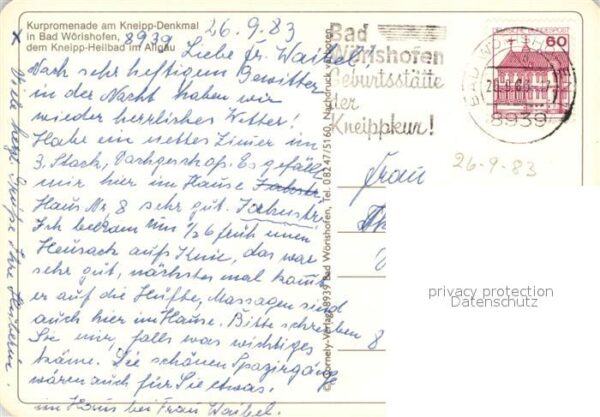 Kurpromenade am Kneipp-Denkmal
in Bad Wörishofen, 8939
dem Kneipp-Heilbad im Allgäu
26.9.83
Liebe Fr. Waibel!
Nach sehr heftigem Gewitter
in der Nacht haben wir
wieder herrliches Wetter!
Habe ein nettes Zimer im
3. Stock, Dachgeschoß. Es gefällt
mir hier im Hause
Haus Nr. 8 sehr gut.
Ich bekam um ½6 früh einen
Heusack aufs Knie, das war
sehr gut, nächstes mal kommt
er auf die Hüfte, Massagen sind
auch hier im Hause. Bitte schreiben
Sie mir, falls was wichtiges
käme. Die schönen Spaziergänge
wären auch für Sie etwas.
im Haus bei Frau Waibel.
x Viele Grüße Ihre
© Cornely-Verlag, 8939 Bad Wörishofen, Tel. 08247/5160, Nachdruck verboten
Bad
Wörishofen
Geburtsstätte
der
Kneippkur!
DEUTSCHE BUNDESPOST
60
BAD WÖRISHOFEN
8939
26-9-83
Frau
8
privacy protection
Datenschutz